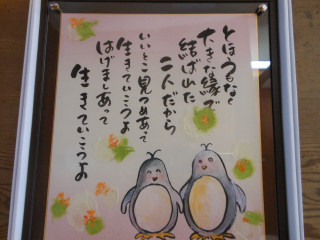 とほうもなく
大きな縁で
結ばれた
二人だから
いいとこ見つめあって
生きていこうよ
はげましあって
生きていこうよ